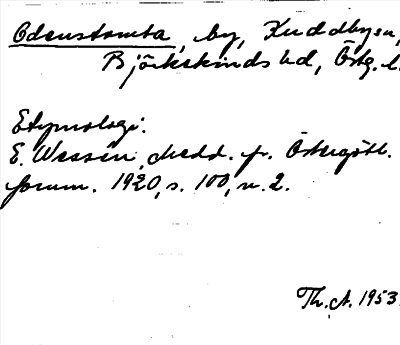 Odenstomta, by, Kuddbyn,
Björkekinds hd, Östg. l.
Etymologi.
E. Wessén, Medd. fr. Östergötl.
fornm. 1920, s. 100, n. 2.
Th. A. 1953.